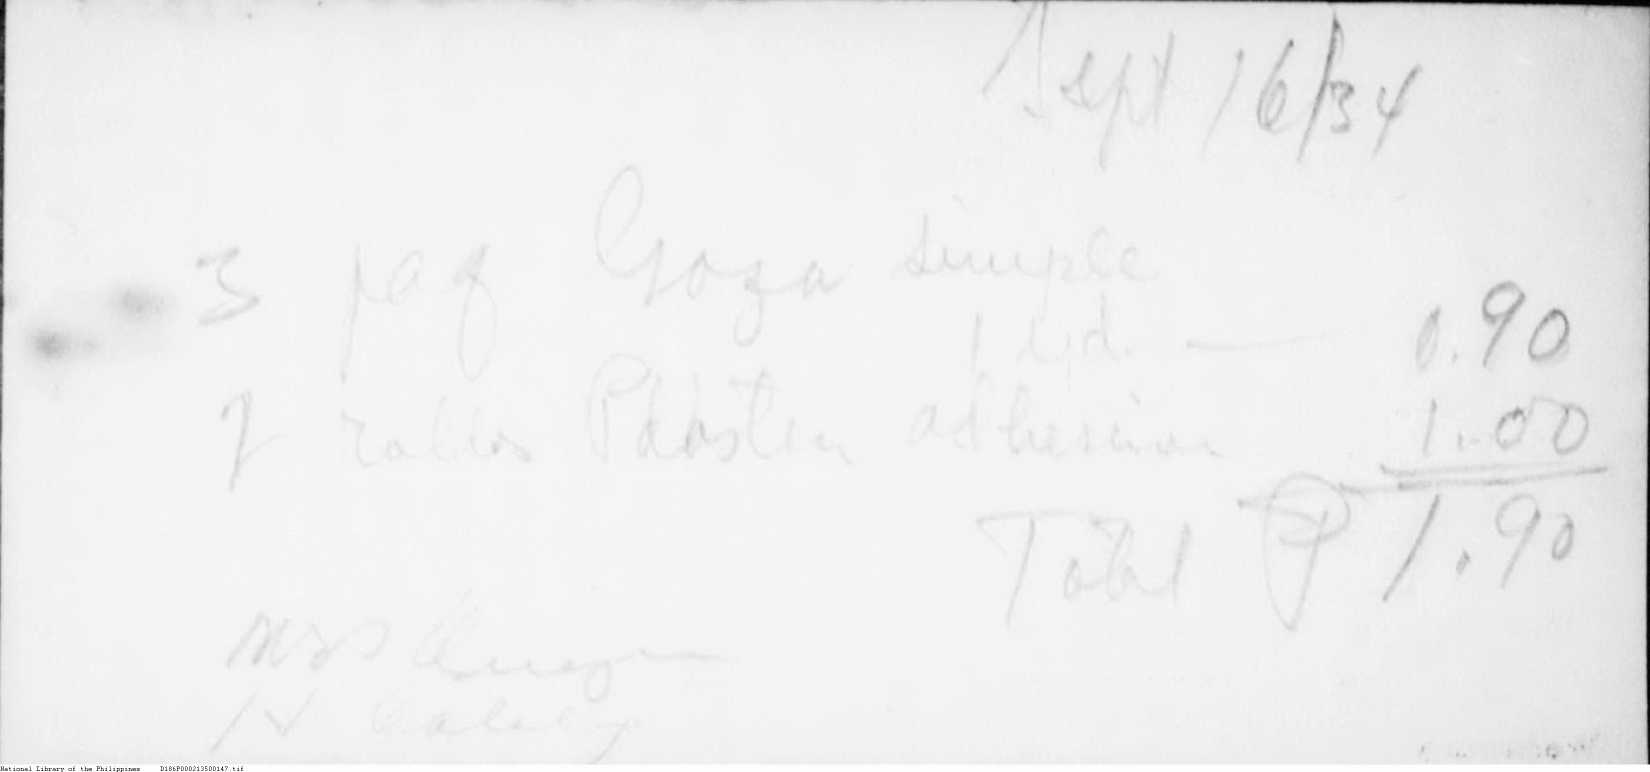 Sept 16/34
3 paq Goza simple
1 yd. — 0.90
2 rollos Plaster adhesivo 1.00
Total ₱ 1.90
Mrs Quezon
National Library of the Philippines D186P000213500147.tif